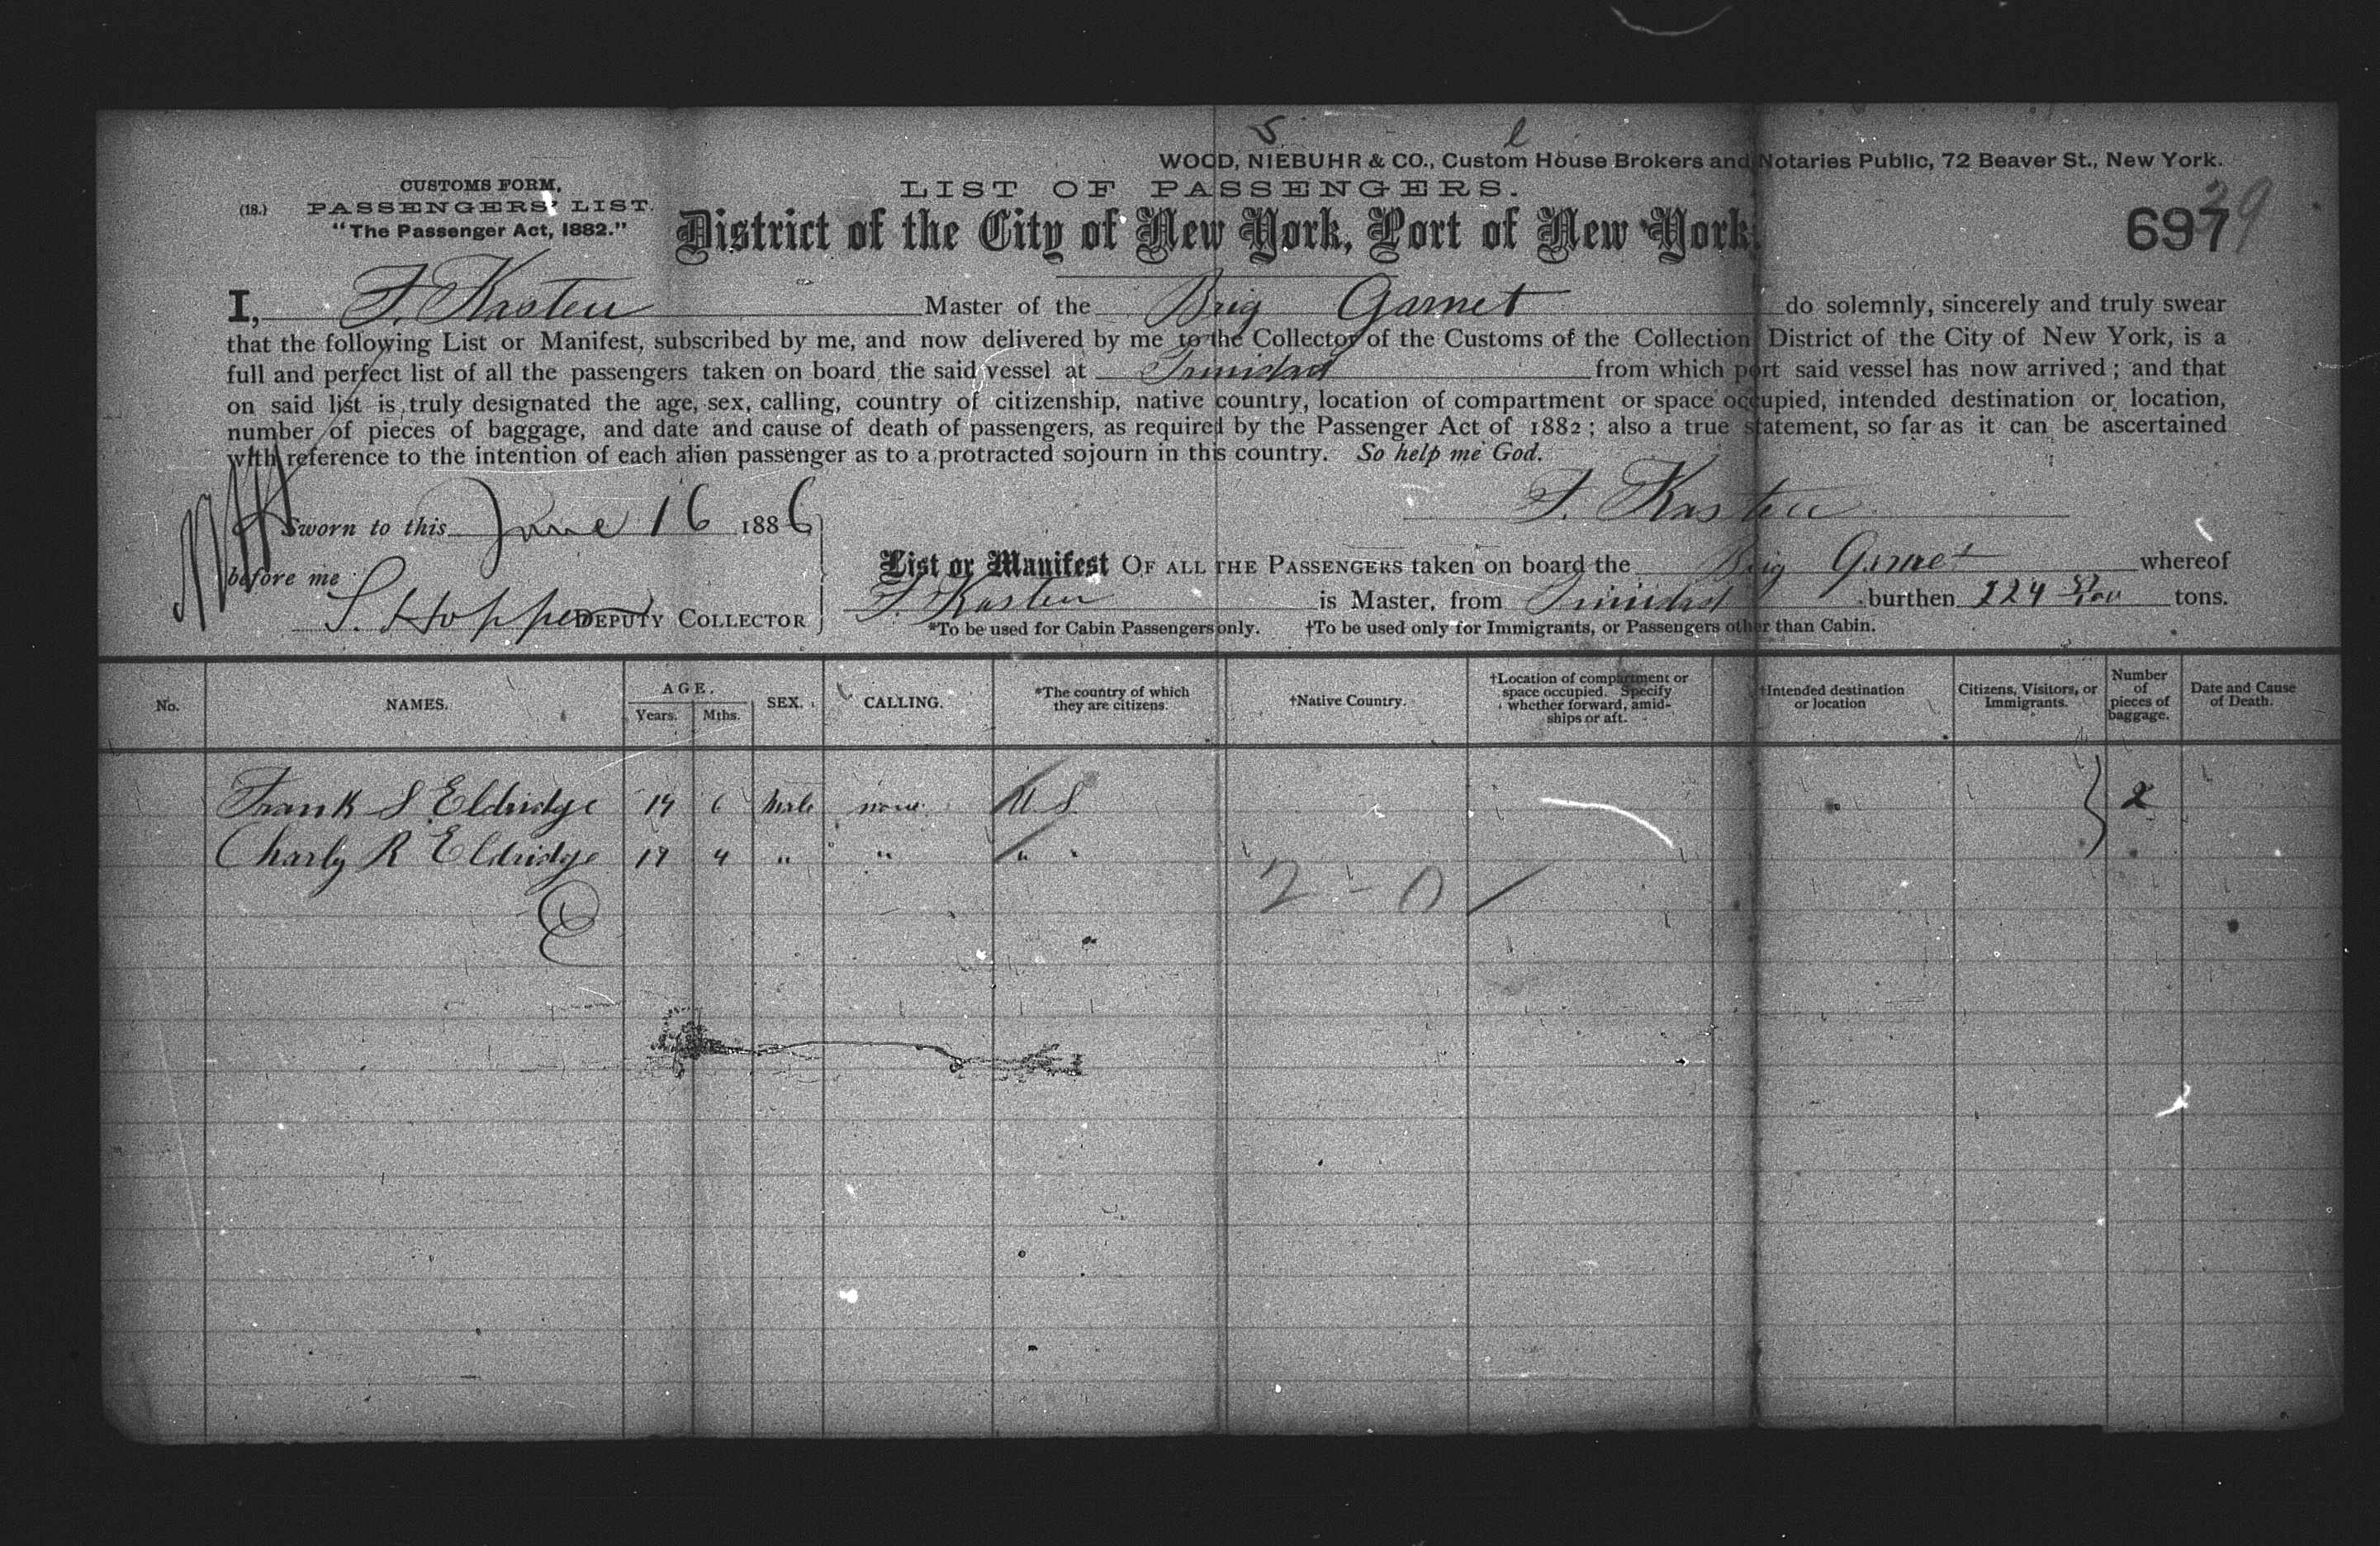 S l
WOOD, NIEBUHR & CO., Custom House Brokers and Notaries Public, 72 Beaver St., New York.
CUSTOMS FORM,
(18.) PASSENGERS' LIST.
"The Passenger Act, 1882."
LIST OF PASSENGERS.
District of the City of New York, Port of New York.
697
39
I, F. Kasten Master of the Brig Garnet do solemnly, sincerely and truly swear
that the following List or Manifest, subscribed by me, and now delivered by me to the Collector of the Customs of the Collection District of the City of New York, is a
full and perfect list of all the passengers taken on board the said vessel at Trinidad from which port said vessel has now arrived ; and that
on said list is truly designated the age, sex, calling, country of citizenship, native country, location of compartment or space occupied, intended destination or location,
number of pieces of baggage, and date and cause of death of passengers, as required by the Passenger Act of 1882 ; also a true statement, so far as it can be ascertained
with reference to the intention of each alien passenger as to a protracted sojourn in this country. So help me God.
F. Kasten
Sworn to this June 16 1886
before me
S. Hopper DEPUTY COLLECTOR
List or Manifest OF ALL THE PASSENGERS taken on board the Brig Garnet whereof
F. Kasten is Master, from Trinidad burthen 224 tons.
*To be used for Cabin Passengers only. †To be used only for Immigrants, or Passengers other than Cabin.
No. NAMES. AGE. Years. Mths. SEX. CALLING. *The country of which they are citizens. †Native Country. †Location of compartment or space occupied. Specify whether forward, amidships or aft. †Intended destination or location Citizens, Visitors, or Immigrants. Number of pieces of baggage. Date and Cause of Death.
Frank S Eldridge 19 6 Male none U S } 2
Charly R Eldridge 17 4 " " " "
2 - 0 /